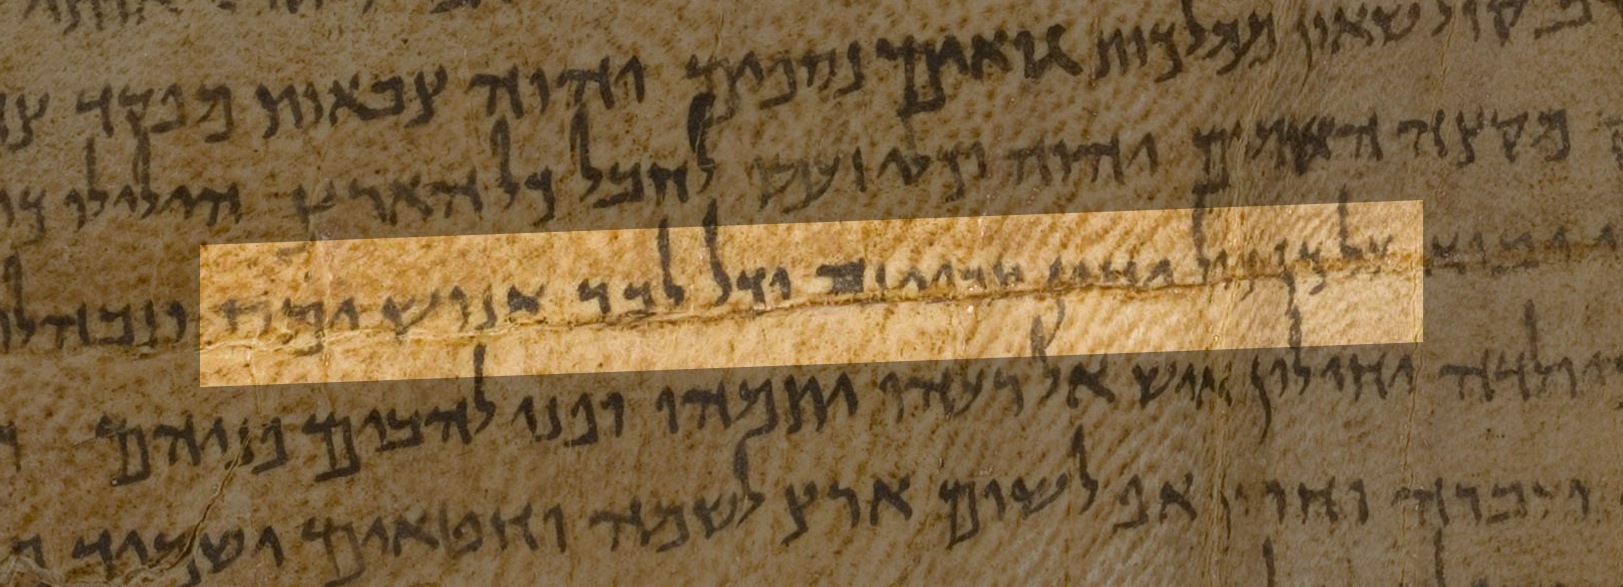 קול שאון ממלכות גואים נספים יהוה צבאות מפקד
מקצה השמים יהוה וכלי זעמו לחבל כל הארץ הילילו
יבוא על כן כול ידים תרפינה וכל לבב אנוש ימס ונבהלו
כיולדה יחילון איש אל רעהו יתמהו ופני להבים פניהם
ועברה וחרון אף לשום ארץ לשמה וחטאים ישמיד